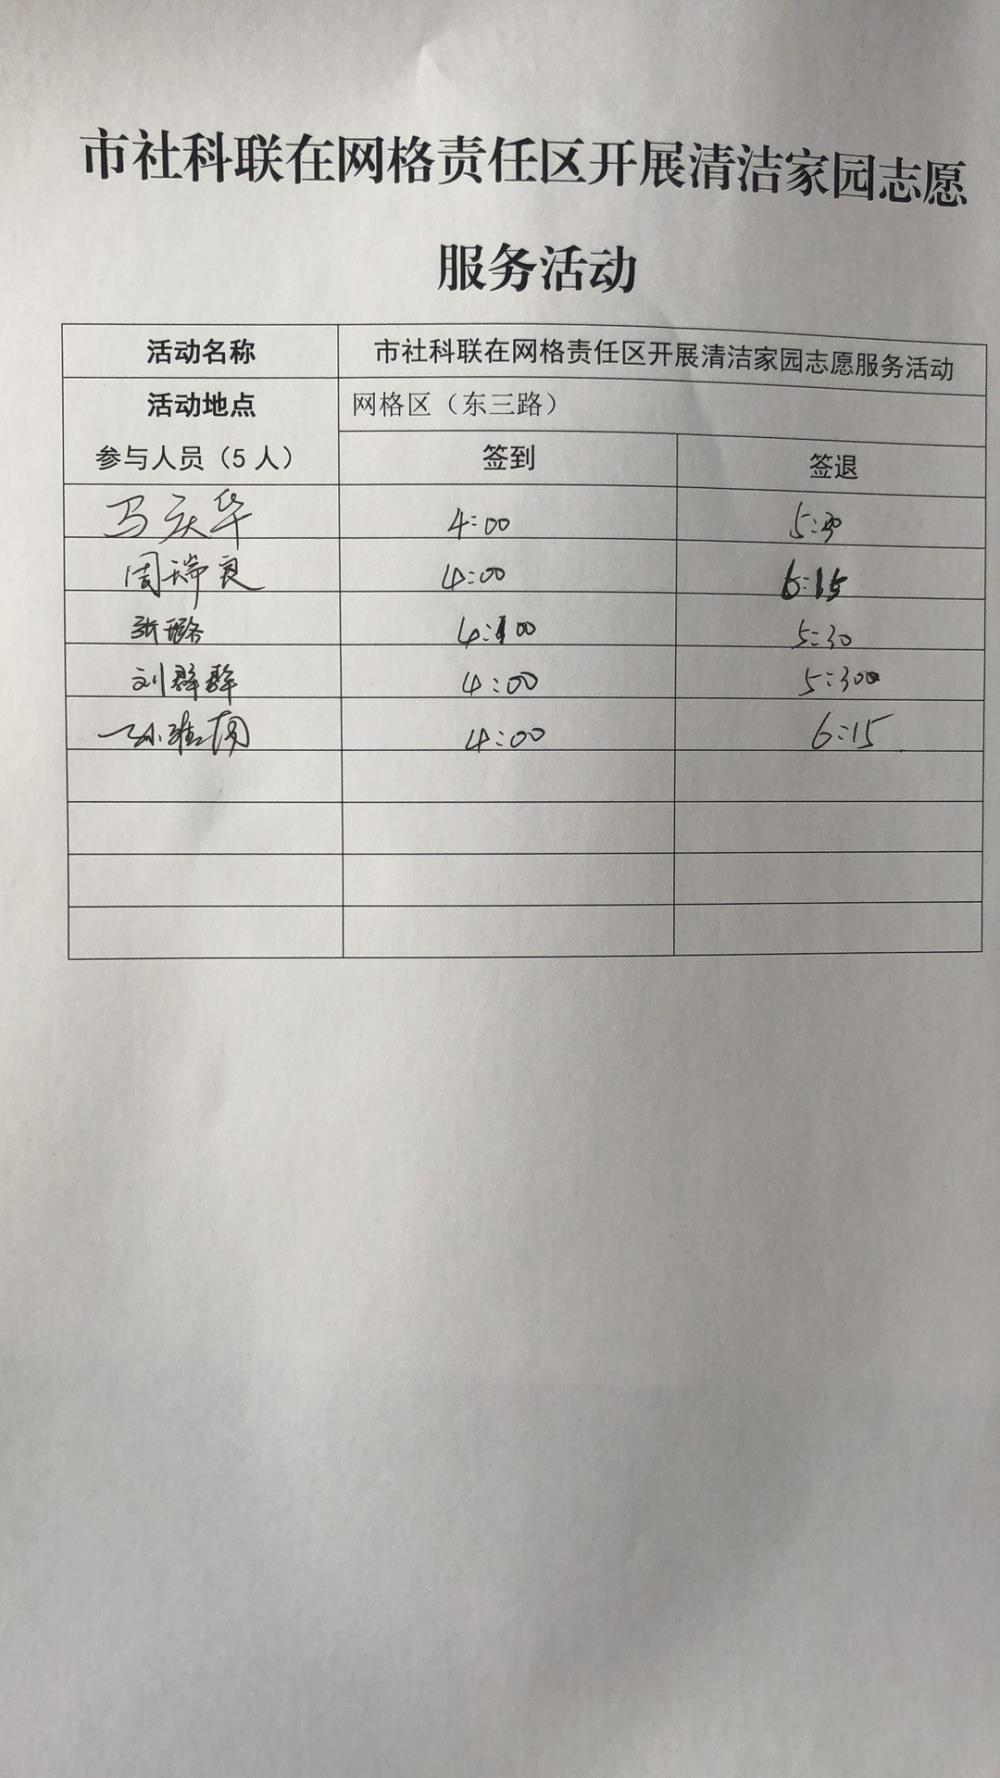 市社科联在网格责任区开展清洁家园志愿
服务活动
活动名称 市社科联在网格责任区开展清洁家园志愿服务活动
活动地点 网格区（东三路）
参与人员（5 人） 签到 签退
马庆华 4:00 5:30
周瑞良 4:00 6:15
张璐 4:00 5:30
刘群群 4:00 5:30
孙雅 4:00 6:15